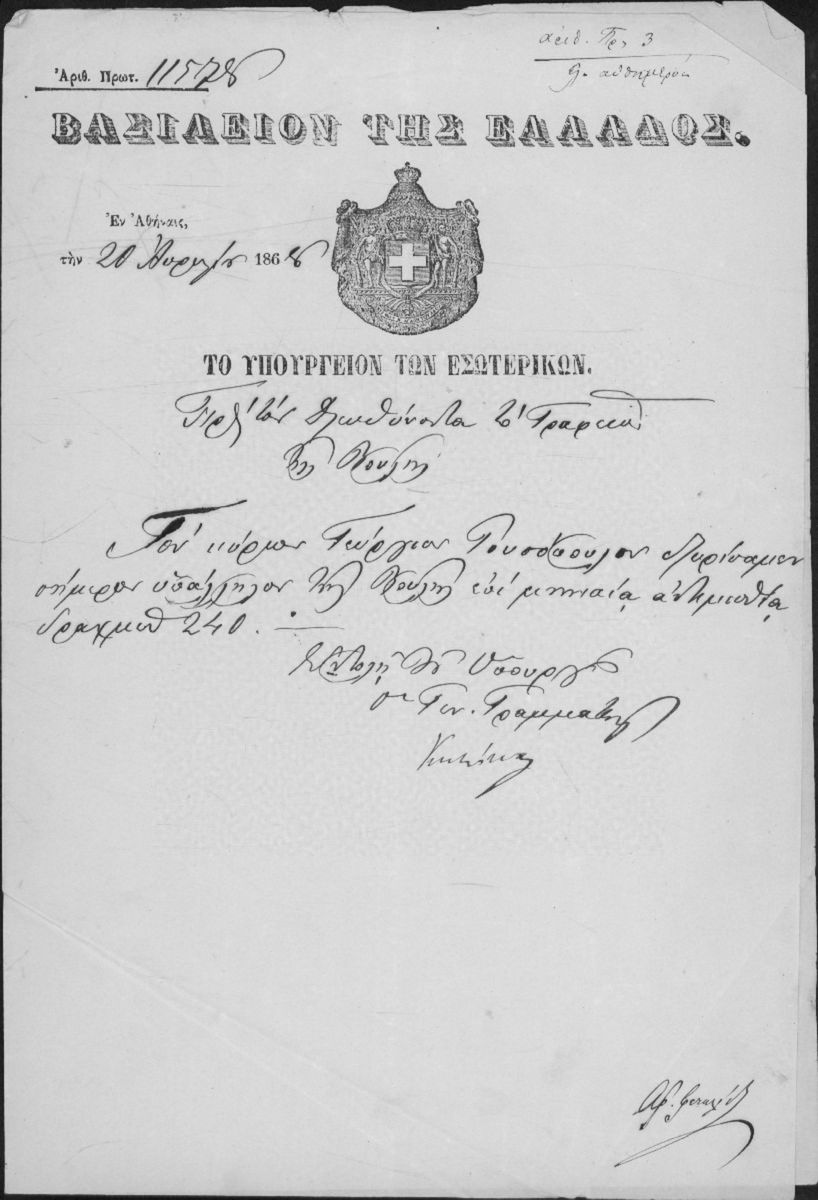 ἀριθ. Πρ. 3
αὐθημερόν
Ἀριθ. Πρωτ. 11578
ΒΑΣΙΛΕΙΟΝ ΤΗΣ ΕΛΛΑΔΟΣ.
Ἐν Ἀθήναις,
τὴν 20 Ἀπριλίου 1868
ΤΟ ΥΠΟΥΡΓΕΙΟΝ ΤΩΝ ΕΣΩΤΕΡΙΚΩΝ.
Πρὸς τὸν Διευθύνοντα τὸ Γραφεῖον
τῆς Βουλῆς
Τὸν κύριον Γεώργιον διωρίσαμεν
σήμερον ὑπάλληλον τῆς Βουλῆς ἐπὶ μηνιαίᾳ ἀντιμισθίᾳ
δραχμῶν 240.
Ἐντολῇ τοῦ Ὑπουργοῦ
ὁ Γεν. Γραμματεὺς